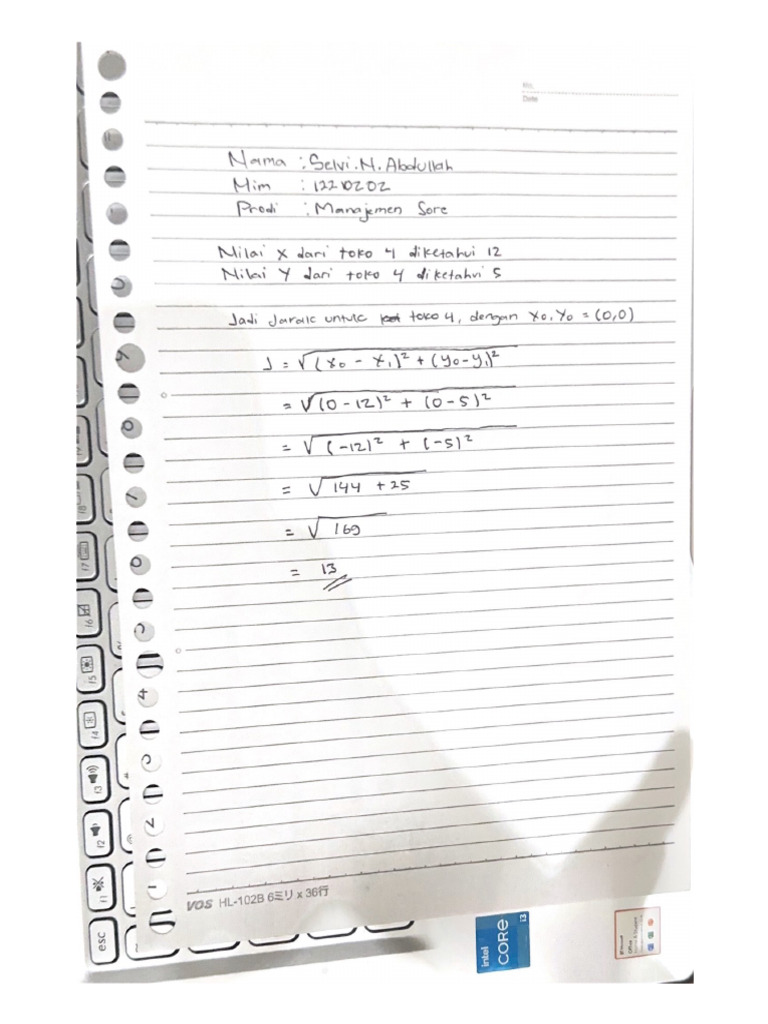 No.
Date
Nama : Selvi.N.Abdullah
Nim : 12210202
Prodi : Manajemen Sore
Nilai X dari toko 4 diketahui 12
Nilai Y dari toko 4 diketahui 5
Jadi Jarak untuk toko 4, dengan X0,Y0 = (0,0)
J = √(X0 - X1)² + (y0-y1)²
= √(0-12)² + (0-5)²
= √(-12)² + (-5)²
= √144 + 25
= √169
= 13
VOS HL-102B 6ミリ x 36行
esc
f1
f2
f3
f4
f5
f6
f7
f8
intel
CORE
i3